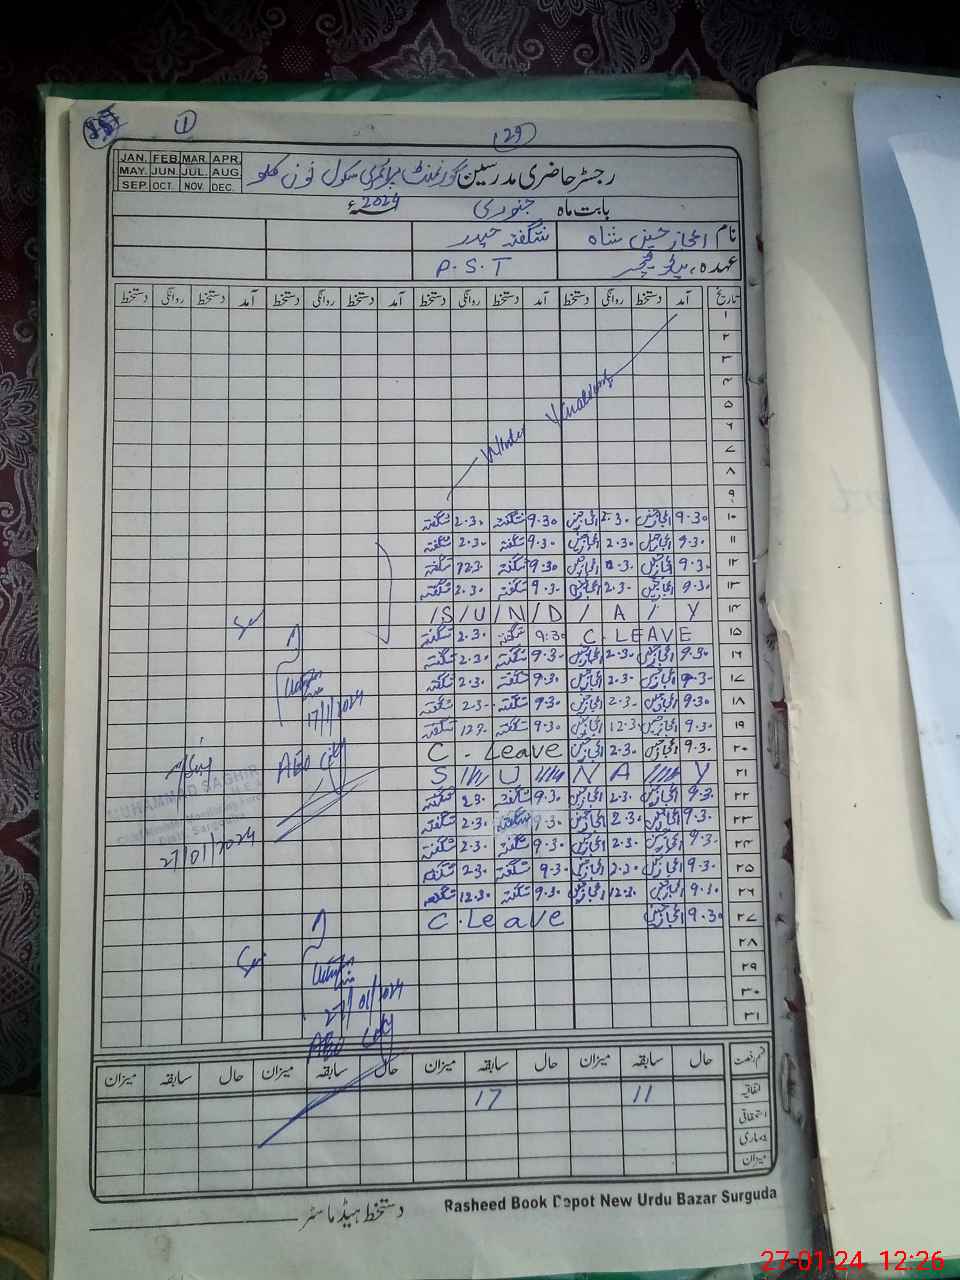 1
29
JAN. FEB. MAR. APR.
MAY. JUN. JUL. AUG.
SEP. OCT. NOV. DEC.
رجسٹر حاضری مدرسین گورنمنٹ پرائمری سکول
بابت ماہ جنوری 2024ء
نام اعجاز حسین شاہ شگفتہ حیدر
عہدہ، ہیڈ ٹیچر P.S.T
تاریخ آمد دستخط روانگی دستخط آمد دستخط روانگی دستخط آمد دستخط روانگی دستخط آمد دستخط روانگی دستخط
۱
۲
۳
۴
۵
۶
۷
۸
۹
Winter
۱۰ 9.30 اعجاز حسین 2.30 اعجاز حسین 9.30 شگفتہ 2.30 شگفتہ
۱۱ 9.30 اعجاز حسین 2.30 اعجاز حسین 9.30 شگفتہ 2.30 شگفتہ
۱۲ 9.30 اعجاز حسین 9.30 شگفتہ 12.30 شگفتہ
۱۳ 9.30 اعجاز حسین 2.30 اعجاز حسین 9.30 شگفتہ 2.30 شگفتہ
۱۴ / S / U / N / D / A / Y
۱۵ C.LEAVE 9:30 شگفتہ 2.30 شگفتہ
۱۶ 9.30 اعجاز حسین 2.30 اعجاز حسین 9.30 شگفتہ 2.30 شگفتہ
۱۷ 9.30 اعجاز حسین 2.30 اعجاز حسین 9.30 شگفتہ 2.30 شگفتہ
۱۸ 9.30 اعجاز حسین 2.30 اعجاز حسین 9.30 شگفتہ 2.30 شگفتہ
۱۹ 9.30 اعجاز حسین 12.30 اعجاز حسین 9.30 شگفتہ 12.30 شگفتہ
۲۰ 9.30 اعجاز حسین 2.30 اعجاز حسین C - Leave
۲۱ S U N A Y
۲۲ 9.30 اعجاز حسین 2.30 اعجاز حسین 9.30 شگفتہ 2.30 شگفتہ
۲۳ 9.30 اعجاز حسین 2.30 اعجاز حسین 9.30 شگفتہ 2.30 شگفتہ
۲۴ 9.30 اعجاز حسین 2.30 اعجاز حسین 9.30 شگفتہ 2.30 شگفتہ
۲۵ 9.30 اعجاز حسین 2.30 اعجاز حسین 9.30 شگفتہ 2.30 شگفتہ
۲۶ 9.30 اعجاز حسین 12.30 اعجاز حسین 9.30 شگفتہ 12.30 شگفتہ
۲۷ 9.30 اعجاز حسین C.Leave
۲۸
۲۹
۳۰
۳۱
17/1/2024
MUHAMMAD ASGHAR
27/01/2024
27/01/2024
قسم رخصت حال سابقہ میزان حال سابقہ میزان حال سابقہ میزان حال سابقہ میزان
اتفاقیہ 11 17
استحقاقی
بیماری
میزان
دستخط ہیڈ ماسٹر
Rasheed Book Depot New Urdu Bazar Surguda
27-01-24 12:26